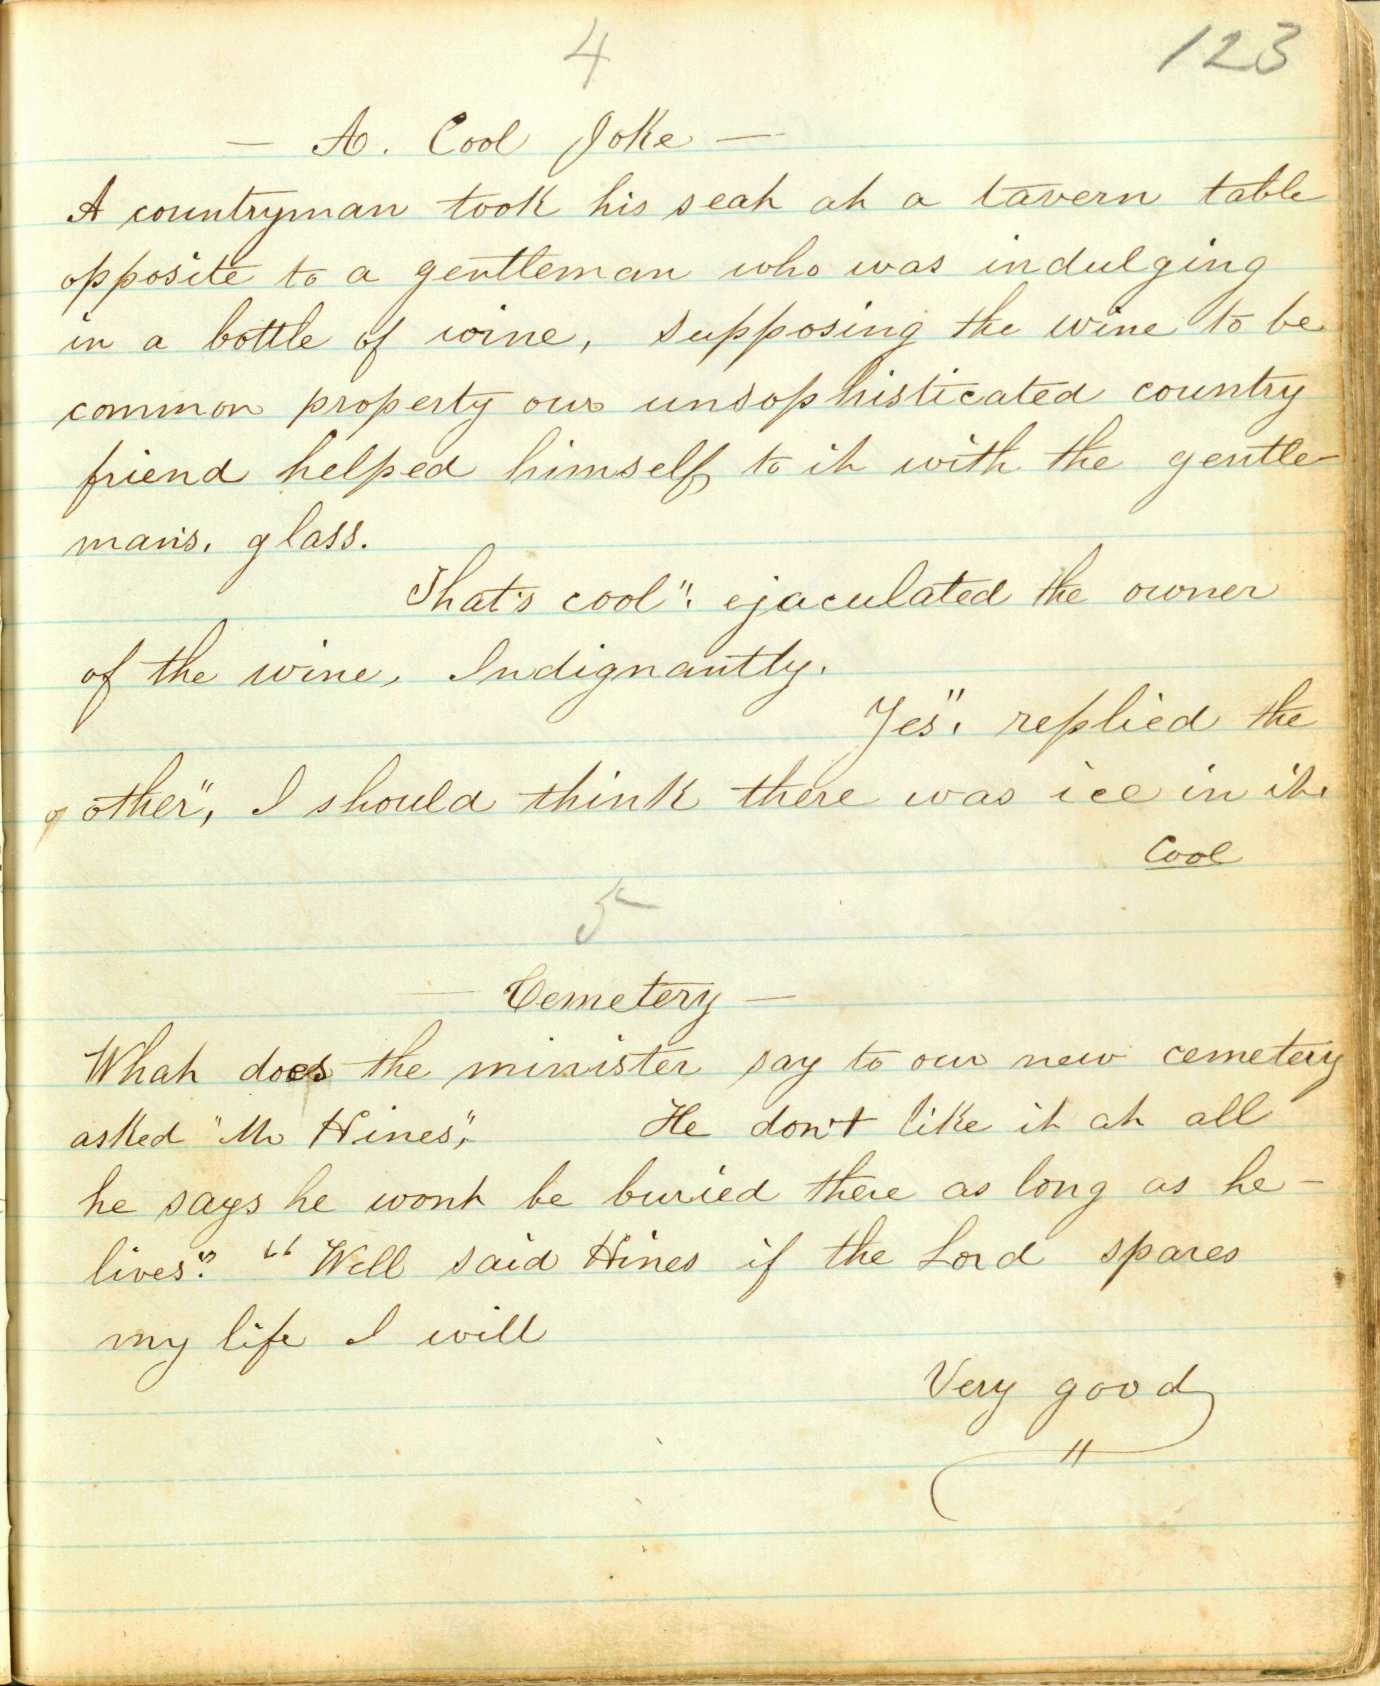 4
123
— A. Cool Joke —
A countryman took his seat at a tavern table
opposite to a gentleman who was indulging
in a bottle of wine, supposing the wine to be
common property our unsophisticated country
friend helped himself to it with the gentle-
man's. glass.
That's cool". ejaculated the owner
of the wine, Indignantly.
Yes", replied the
other", I should think there was ice in it.
Cool
5
— Cemetery —
What does the minister say to our new cemetery
asked "Mr Hines", He don't like it at all
he says he wont be buried there as long as he -
lives". "Well said Hines if the Lord spares
my life I will
Very good
"